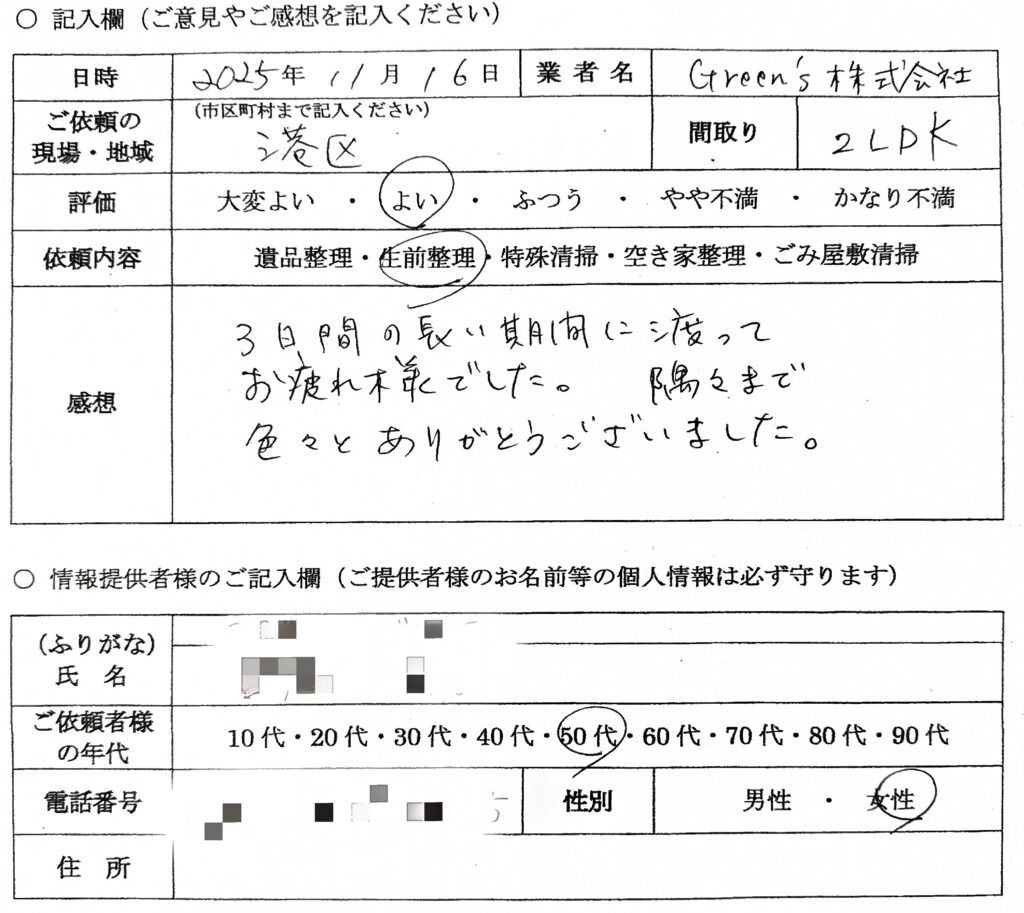 ○ 記入欄（ご意見やご感想を記入ください）
日時 2025年 11月 16日 業者名 Green's 株式会社
ご依頼の現場・地域 (市区町村まで記入ください) 港区 間取り 2LDK
評価 大変よい ・ よい ・ ふつう ・ やや不満 ・ かなり不満
依頼内容 遺品整理・生前整理・特殊清掃・空き家整理・ごみ屋敷清掃
感想
3日間の長い期間に渡って
お疲れ様でした。 隅々まで
色々とありがとうございました。
○ 情報提供者様のご記入欄（ご提供者様のお名前等の個人情報は必ず守ります）
(ふりがな)
氏 名
ご依頼者様の年代 10代・20代・30代・40代・50代・60代・70代・80代・90代
電話番号 性別 男性 ・ 女性
住 所